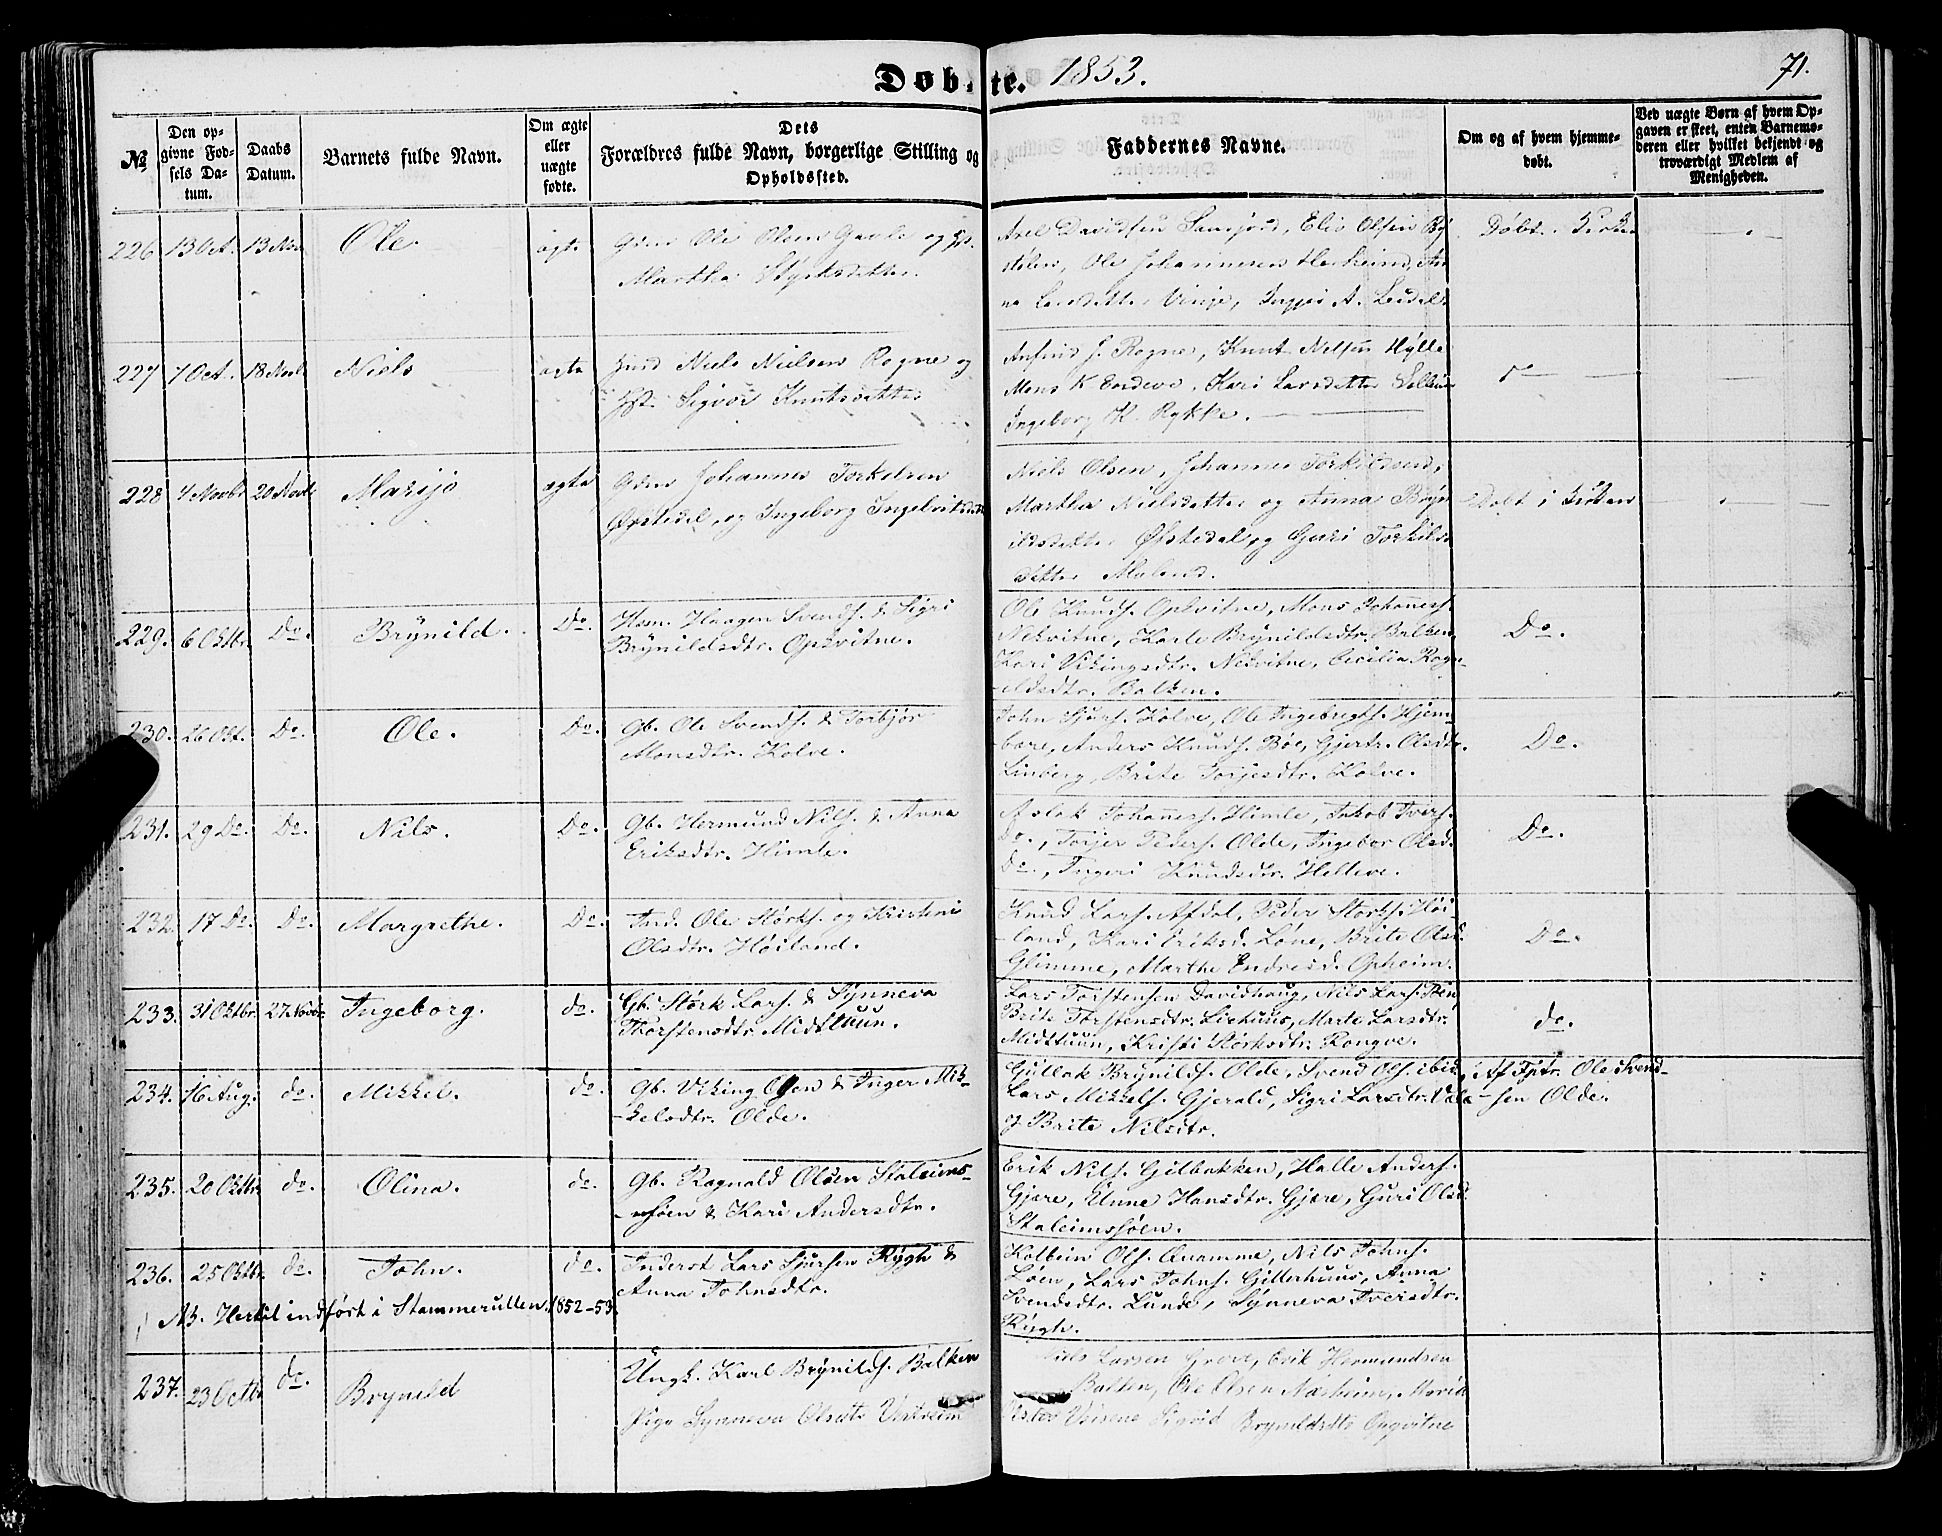 Døbte. 1853. 71.
No
Den opgivne Fødsels Datum.
Daabs Datum.
Barnets fulde Navn.
Om ægte eller uægte fødte.
Dets Forældres fulde Navn, borgerlige Stilling og Opholdssted.
Faddernes Navne.
Om og af hvem hjemmedøbt.
Ved uægte Børn af hvem Opgaven er skeet, enten Barnemoderen eller hvilket bekjendt og troværdigt Medlem af Menigheden.
226 13 Oct. 13 Nov. Ole ægte Ole Olsen og
Martha Styrksdatter
Axel Davidsen Olsen
Ole Johannesen
Vinje,
Døbt
227 7 Oct. 18 Novb Niels ægte Niels Nielsen Rogne og
Sigvor Knutsdatter
J. Rogne, Knut Nelsen Hylle
Mons K Endeve, Kari Larsdatter
Ingeborg K. Rykke.
Do
228 4 Novb 20 Novb Marijo ægte Johannes Torkelsen
Øfstedal, og Ingeborg
Niels Olsen, Johannes
Martha Nielsdatter og Anna Bryn
ildsdatter Øfstedal, og Guri Torkils
datter
Døbt i Kirken
229. 6 Oktbr. Do. Brÿnild. Do. Husm. Haagen Svends. & Sigri
Brÿnildsdtr. Opkvitne.
Ole Knuds. Opkvitne, Mons Johanness.
Nekvitne, Karle Brÿnildsdtr. Balken,
Kari Vikingsdtr. Nekvitne, Cecilia Rogn-
-ildsdtr. Balken.
Do.
230. 26 Okt. Do. Ole. Do. Gb. Ole Svends. & Torbjør
Monsdtr. Kolve.
John Sjurs. Kolve, Ole Ingebrigts. Hjem-
-bare, Anders Knuds. Bøe, Gjertr. Olsdtr.
Linberg, Brite Torjesdtr. Kolve.
Do.
231. 29 Do. Do. Nils. Do. Gb. Hermund Nils. & Anna
Eriksdtr. Himle.
Aslak Johaness. Himle, Jakob Ivers.
Do., Torjer Peders. Olde, Ingebor Olsd.
Do., Ingeri Knudsdtr. Helleve.
Do.
232. 17 Do. Do. Margrethe. Do. Ind. Ole Størks. og Kristini
Olsdtr. Høiland.
Knud Lars. Afdal, Peder Størks. Høi-
-land, Kari Eriksd. Løne, Brite Olsd.
Glimme, Marthe Endresd. Opheim.
Do.
233. 31 Oktbr. 27 Novbr. Ingeborg. do. Gb. Størk Lars. & Synneva
Thorstensdtr. Midttuun.
Lars Torstensen Davidhaug, Nils Lars.
Brite Torstensdtr. Liehuus, Marte Larsdtr.
Midttuun, Kristi Størksdtr. Rongve.
do.
234. 16 Aug. do. Mikkel. do. Gb. Viking Olsen & Inger Mik-
-kelsdtr. Olde.
Gullak Brÿnilds. Olde, Svend Ols. ibid,
Lars Mikkels. Gjerald, Sigri Larsdtr.
og Brite Nilsdtr.
Af Ole Svend-
-sen Olde.
235. 20 Oktbr. do. Olina. do. Gb. Ragnald Olsen Staleims-
-søen & Kari Andersdtr.
Erik Nils. Gilbakken, Halle Anders.
Gjære, Unne Hansdtr. Gjære, Guri Olsd.
Staleimssøen.
236. 25 Oktbr. do. John. do. Inderst Lars Sjursen Rÿgh &
Anna Johnsdtr.
Kolbein Ols. Qvamme, Nils Johns.
Løen, Lars Johns. Gitterhuus, Anna
Svendsdtr. Lunde, Synneva Iversdtr.
Rÿgh.
NB. Hertil indført i Stammerullen 1852-53.
237. 23 Octbr do. Brynild Ungk. Karl Brÿnilds. Balken
Pige Synneva Olsdtr
Niels Larsen Grove, Erik Hermundsen
Balken, Ole Olsen
Sigrid Brynildsdtr Opqvitne